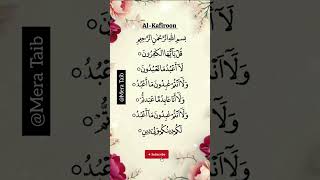 Al-Kafiroon
بِسْمِ اللّٰهِ الرَّحْمٰنِ الرَّحِيْمِ
قُلْ يٰٓاَيُّهَا الْكٰفِرُوْنَ
لَآ اَعْبُدُ مَا تَعْبُدُوْنَ
وَلَآ اَنْتُمْ عٰبِدُوْنَ مَآ اَعْبُدُ
وَلَآ اَنَا عَابِدٌ مَّا عَبَدْتُّمْ
وَلَآ اَنْتُمْ عٰبِدُوْنَ مَآ اَعْبُدُ
لَكُمْ دِيْنُكُمْ وَلِيَ دِيْنِ
@Mera Taib
Subscribe